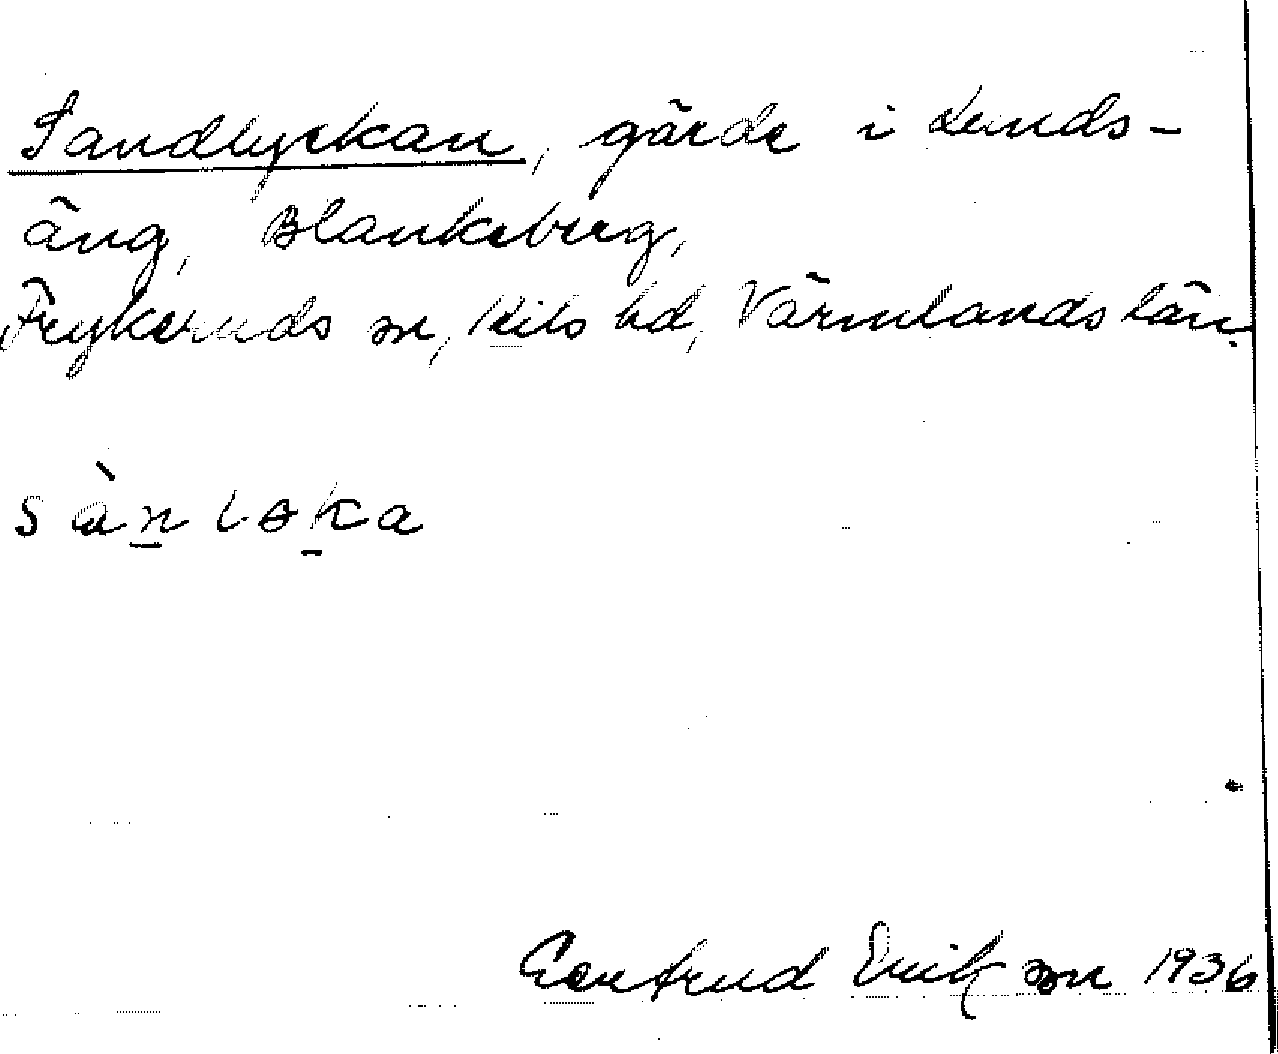 Sandlyckan, gärde i Lunds-
äng, Blanksberg,
Frykeruds sn, Kils hd, Värmlands län.
sàn lɵka
Gertrud Erikson 1936